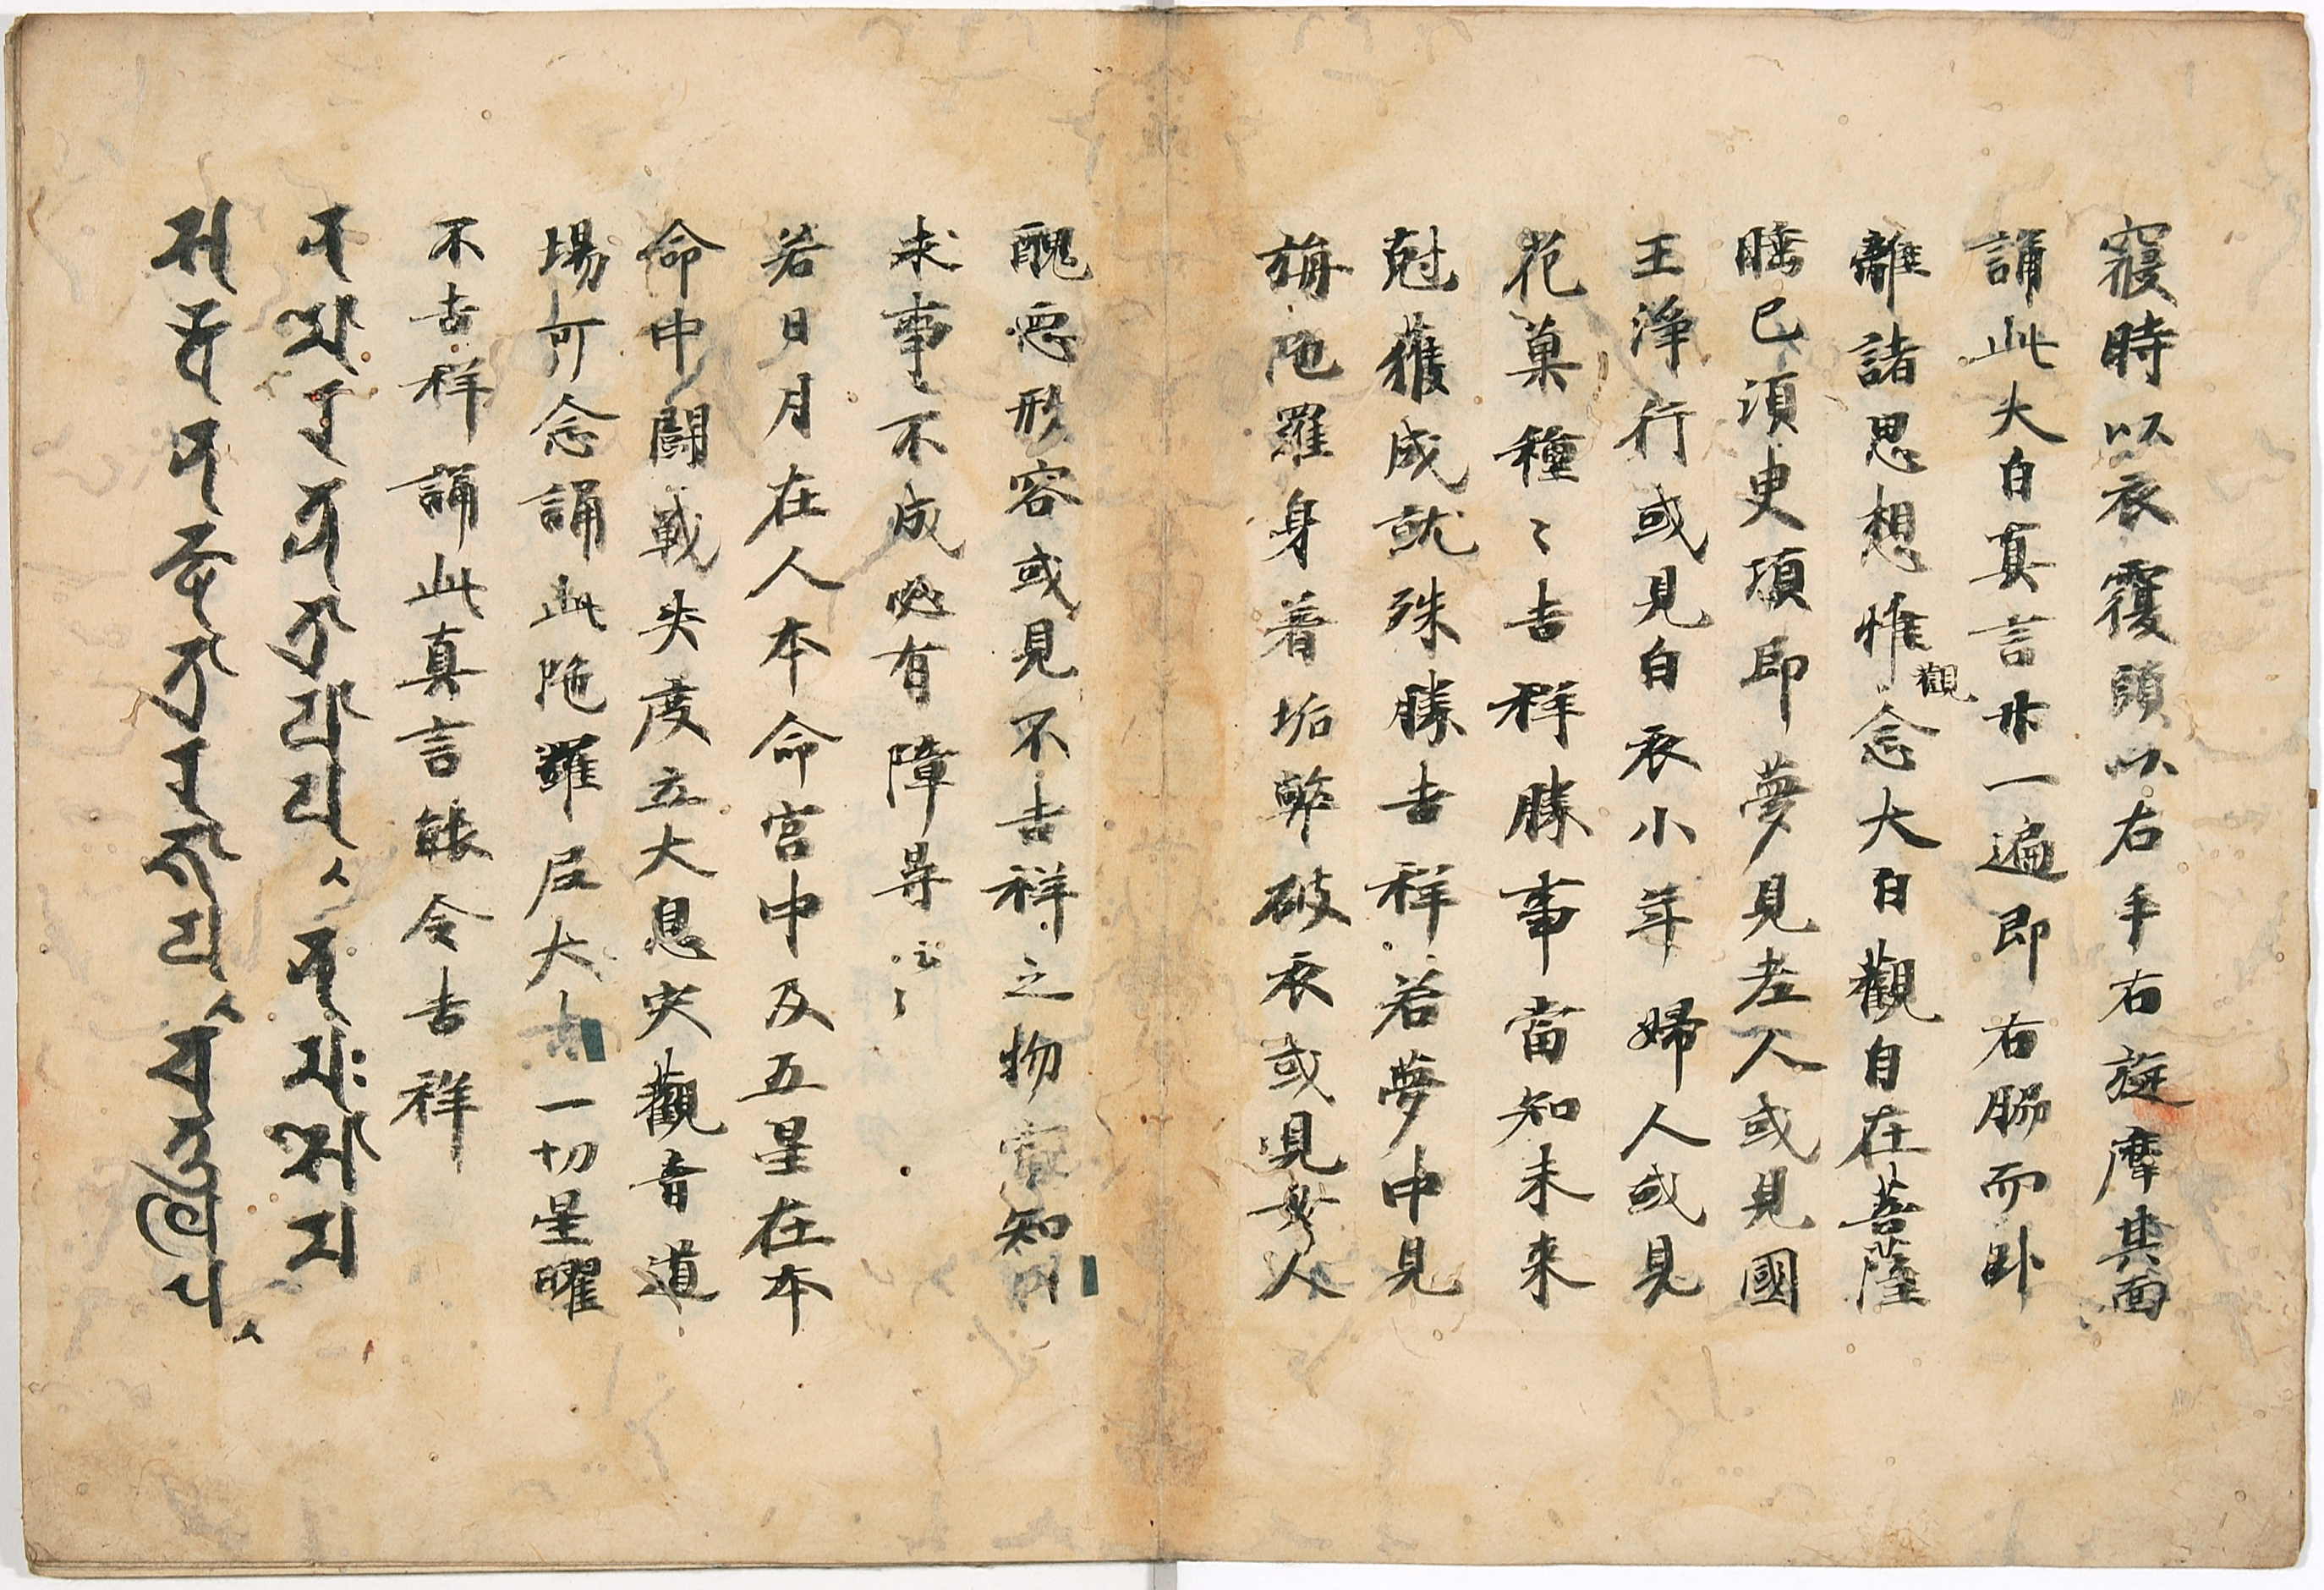 寢時以衣覆頭以右手右旋摩其面
誦此大白真言廿一遍即右脇而卧
離諸思想惟觀念大白觀自在菩薩
睡已須臾頃即夢見老人或見國
王淨行或見白衣小年婦人或見
花菓種〻吉祥勝事當知未来
尅獲成就殊勝吉祥若夢中見
旃陁羅身著垢弊破衣或見女人
醜惡形容或見不吉祥之物當知所
求事不成必有障㝵云〻
若日月在人本命宮中及五星在本
命中闘戰失度立大息灾觀音道
場可念誦此陁羅尼大吉一切星曜
不吉祥誦此真言能令吉祥